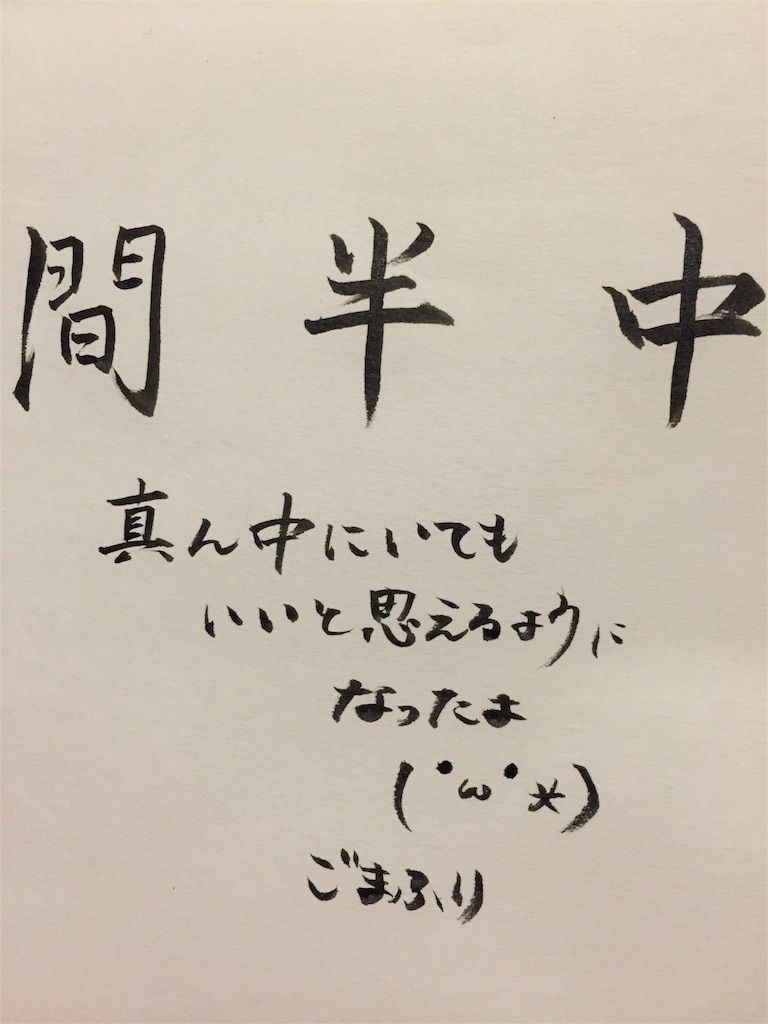 間 半 中
真ん中にいても
いいと思えるように
なったよ
(・ω・*)
ごまふり